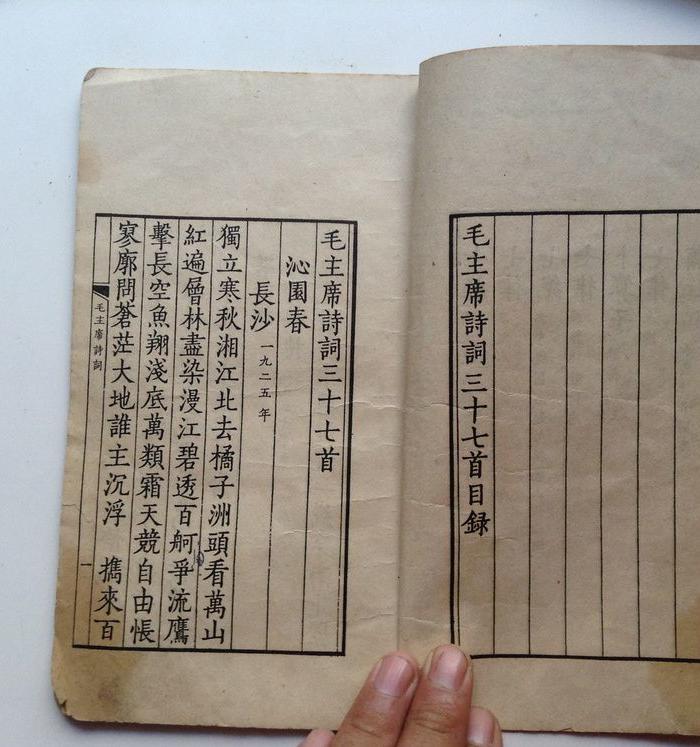 毛主席詩詞三十七首目録
毛主席詩詞三十七首
沁園春
長沙 一九二五年
獨立寒秋湘江北去橘子洲頭看萬山
紅遍層林盡染漫江碧透百舸爭流鷹
擊長空魚翔淺底萬類霜天競自由悵
寥廓問蒼茫大地誰主沉浮 擕來百
毛主席詩詞 一